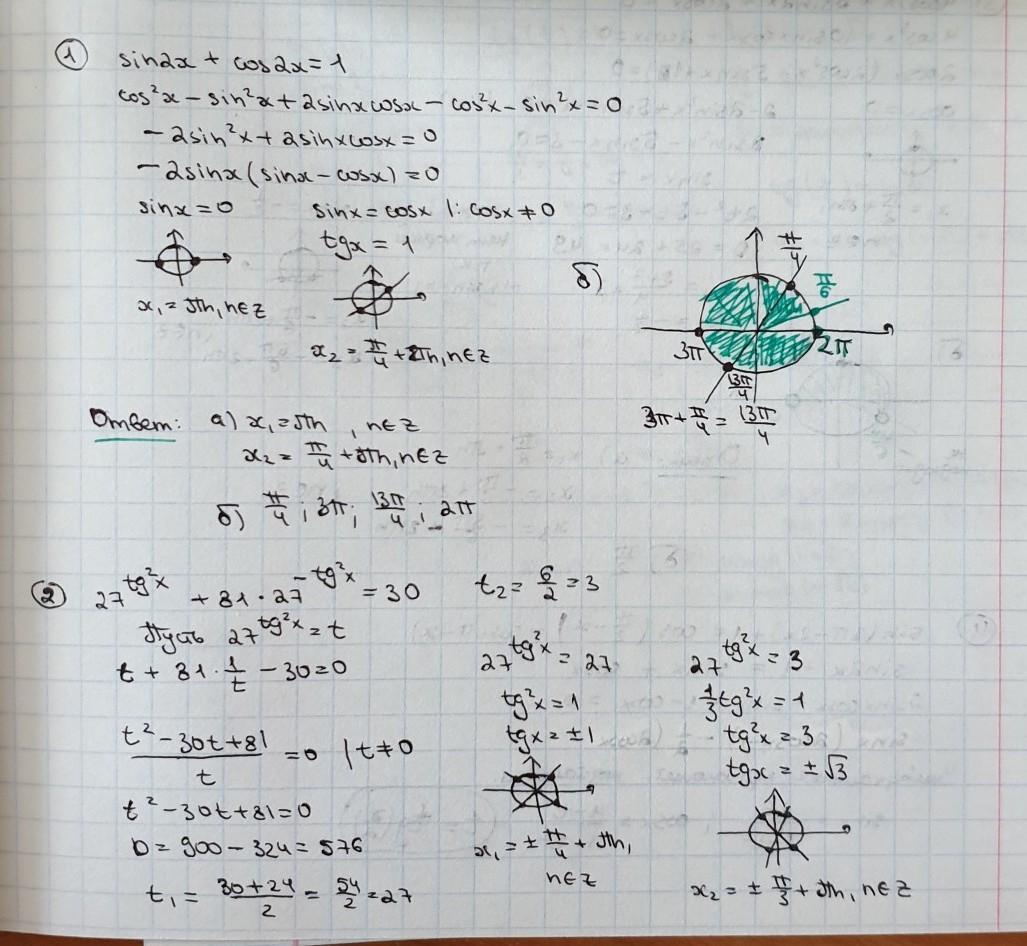 ① sin2x + cos2x = 1
cos²x − sin²x + 2sinxcosx − cos²x − sin²x = 0
−2sin²x + 2sinxcosx = 0
−2sinx(sinx − cosx) = 0
sinx = 0
sinx = cosx |: cosx ≠ 0
tgx = 1
x₁ = πn, n∈Z
x₂ = π/4 + πn, n∈Z
б)
π/4
π/6
2π
3π
13π/4
3π + π/4 = 13π/4
Ответ: а) x₁ = πn , n∈Z
x₂ = π/4 + πn, n∈Z
б) π/4 ; 3π; 13π/4 ; 2π
② 27^(tg²x) + 81 · 27^(−tg²x) = 30
Пусть 27^(tg²x) = t
t + 81 · 1/t − 30 = 0
(t² − 30t + 81)/t = 0 | t ≠ 0
t² − 30t + 81 = 0
D = 900 − 324 = 576
t₁ = (30 + 24)/2 = 54/2 = 27
t₂ = 6/2 = 3
27^(tg²x) = 27
tg²x = 1
tgx = ±1
x₁ = ± π/4 + πn,
n∈Z
27^(tg²x) = 3
1/3 tg²x = 1
tg²x = 3
tgx = ±√3
x₂ = ± π/3 + πn, n∈Z